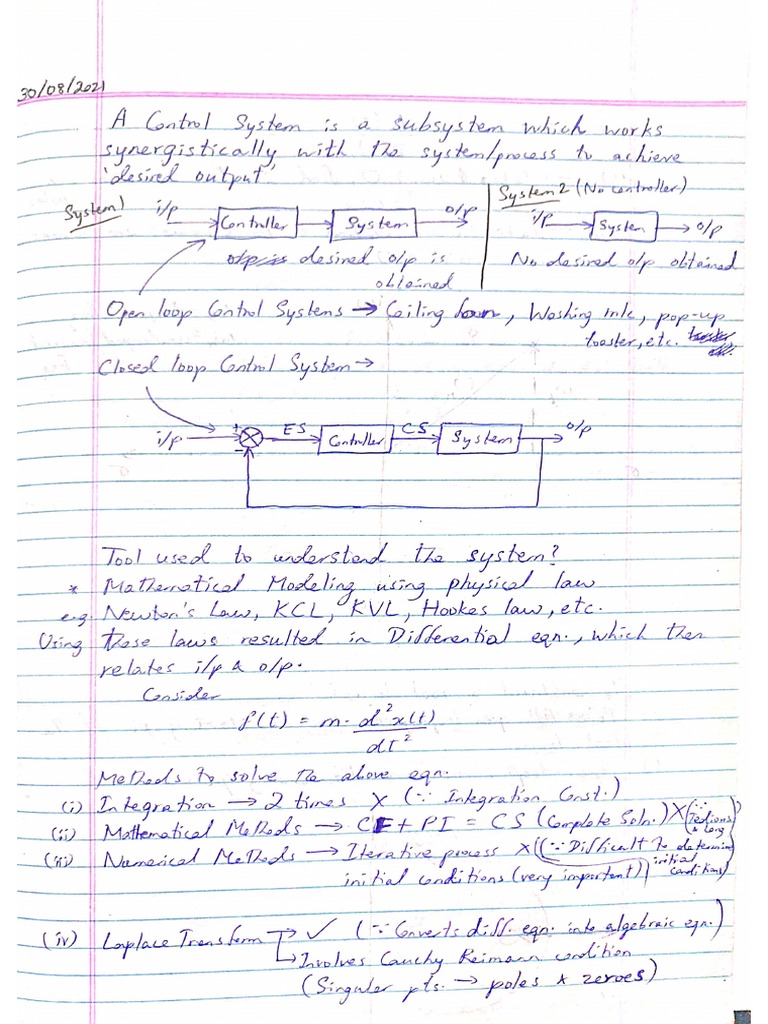 30/08/2021
A Control System is a subsystem which works
synergistically with the system/process to achieve
'desired output'
System1 i/p Controller System o/p
desired o/p is
obtained
System2 (No controller)
i/p System o/p
No desired o/p obtained
Open loop Control Systems → Ceiling fan, Washing m/c, pop-up
toaster, etc.
Closed loop Control System →
i/p + - ES Controller CS System o/p
Tool used to understand the system?
* Mathematical Modeling using physical law
e.g. Newton's Law, KCL, KVL, Hookes law, etc.
Using these laws resulted in Differential eqn., which then
relates i/p & o/p.
Consider
f(t) = m. d²x(t)
dt²
Methods to solve the above eqn.
(i) Integration → 2 times X (∵ Integration Const.)
(ii) Mathematical Methods → CF + PI = CS (Complete Soln.) X (∵ Tedious & long)
(iii) Numerical Methods → Iterative process X (∵ Difficult to determine
initial conditions (very important) initial conditions)
(iv) Laplace Transform → ✓ (∵ Converts diff. eqn. into algebraic eqn.)
↳ Involves Cauchy Reimann condition
(Singular pts. → poles & zeroes)